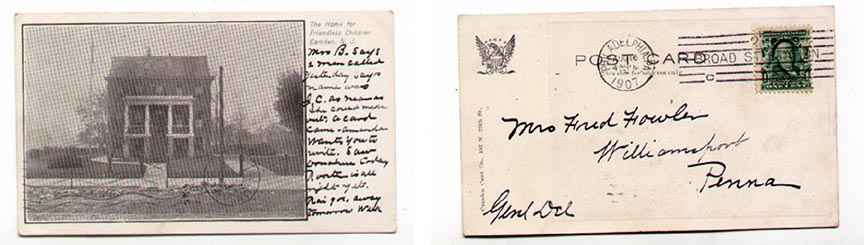 The Home for
Friendless Children
Camden, N. J.
Mrs B. Says
a man called
yesterday says
name was
J. C. as near as
she could make
out. a card
came - amanda
wants you to
write. Saw
today
is all
right yet.
away
tomorrow Week
POST CARD
This side for address only
PHILADELPHIA, PA.
1907
BROAD ST. STATION
C
Mrs Fred Fowler
Williamsport
Penna
Genl Del
Camden Card Co., 107 N. 25th St.